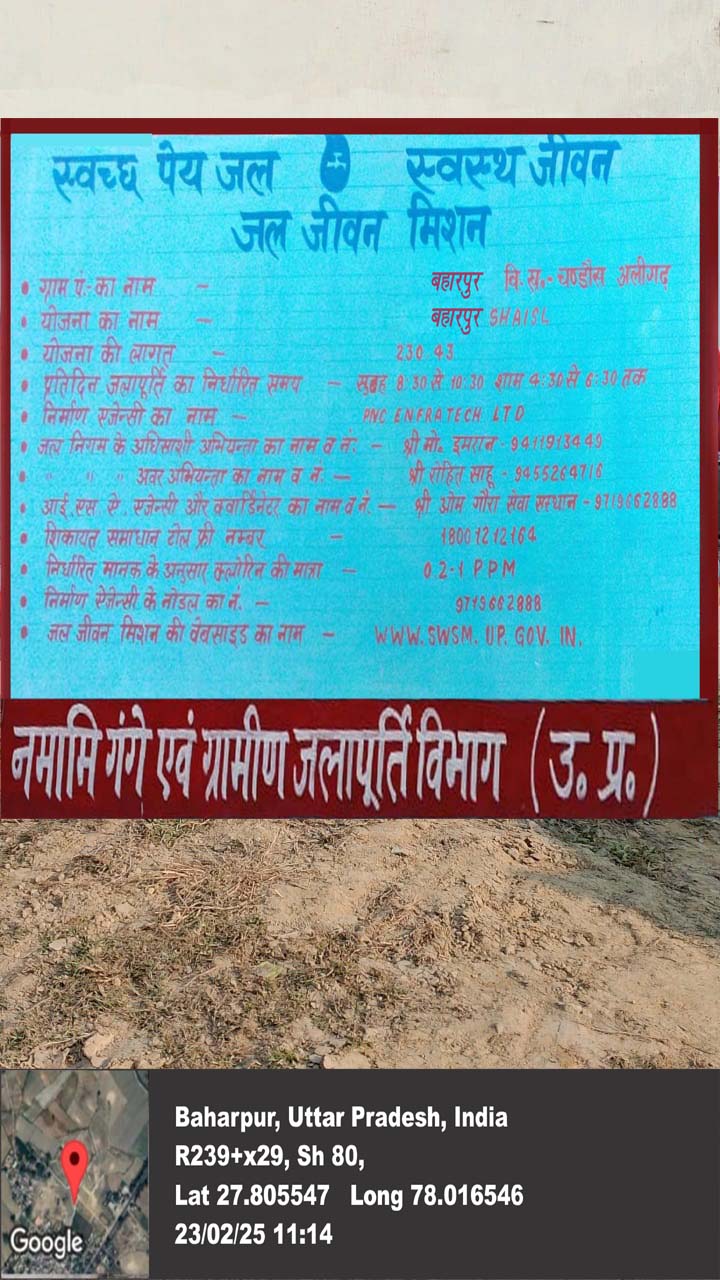 स्वच्छ पेय जल स्वस्थ जीवन
जल जीवन मिशन
• ग्राम पं.-का नाम - बहारपुर वि.ख.-चण्डौस अलीगढ़
• योजना का नाम - बहारपुर SHAISL
• योजना की लागत - 230.43
• प्रतिदिन जलापूर्ति का निर्धारित समय - सुबह 8:30 से 10:30 शाम 4:30 से 6:30 तक
• निर्माण एजेन्सी का नाम - PNC ENFRATECH LTD
• जल निगम के अधिसाशी अभियन्ता का नाम व नं. - श्री मो. इमरान - 9411913449
• " " " अवर अभियन्ता का नाम व नं. - श्री रोहित साहू - 9455264716
• आई.एस.ए. एजेन्सी और क्वार्डिनेटर का नाम व नं. - श्री ओम गौरा सेवा संस्थान - 9719662888
• शिकायत समाधान टोल फ्री नम्बर - 18001212164
• निर्धारित मानक के अनुसार क्लोरिन की मात्रा - 0.2-1 PPM
• निर्माण ऐजेन्सी के नोडल का नं. - 9719662888
• जल जीवन मिशन की वेबसाइड का नाम - WWW.SWSM.UP.GOV.IN.
नमामि गंगे एवं ग्रामीण जलापूर्ति विभाग (उ.प्र.)
Baharpur, Uttar Pradesh, India
R239+x29, Sh 80,
Lat 27.805547 Long 78.016546
23/02/25 11:14
Google